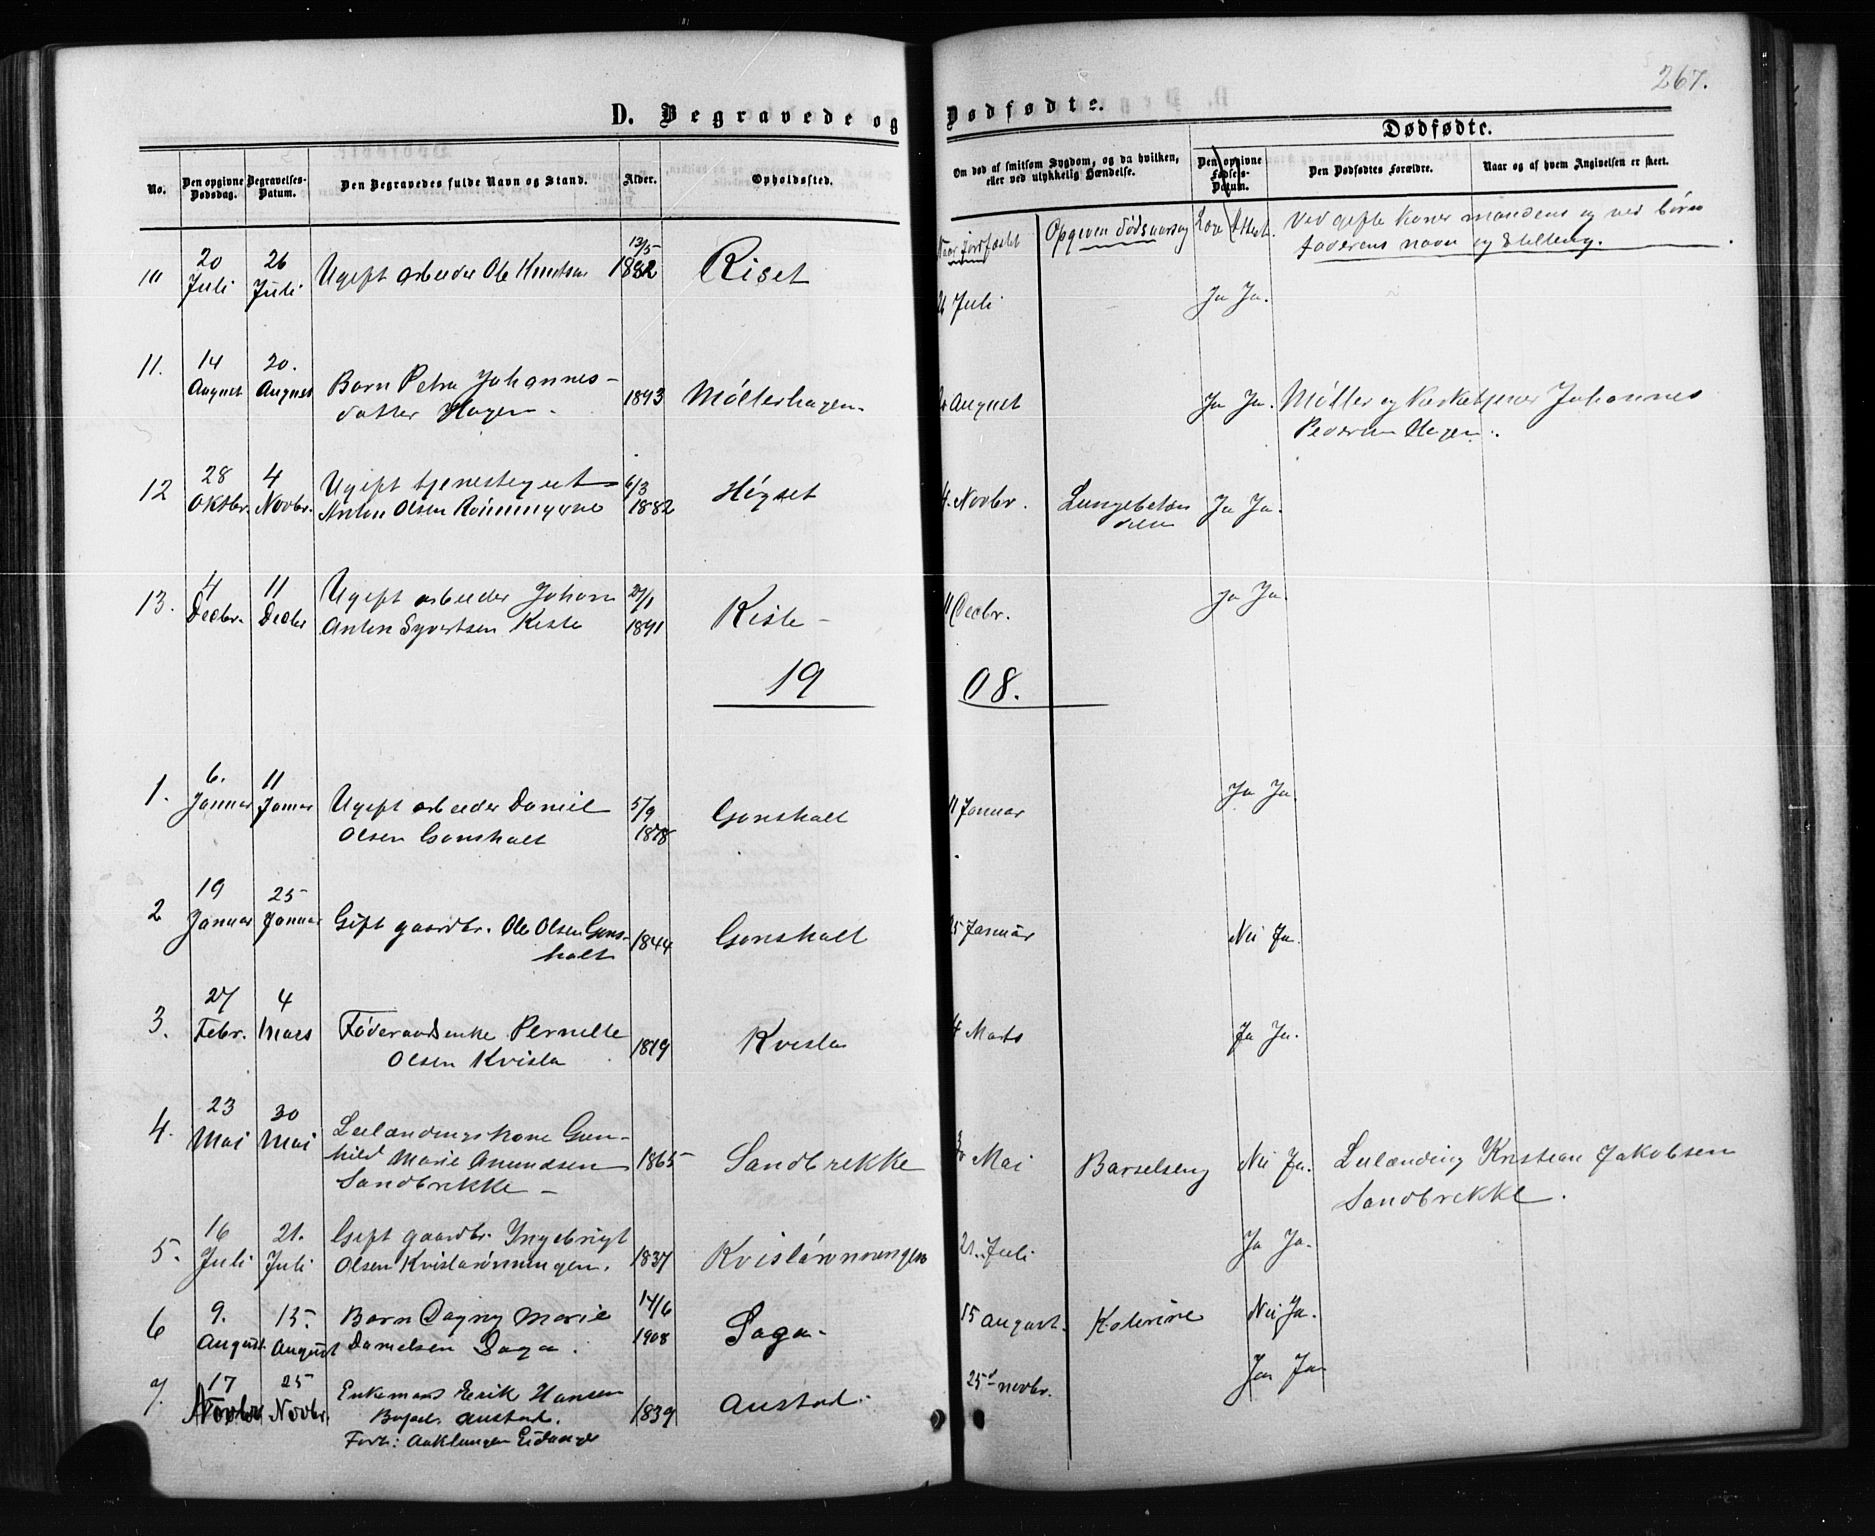 267.
D. Begravede og Dødfødte.
Dødfødte.
No.
Den opgivne Dødsdag.
Begravelses-Datum.
Den Begravedes fulde Navn og Stand.
Alder.
Opholdssted.
Om død af smitsom Sygdom, og da hvilken,
eller ved ulykkelig Hændelse.
Den opgivne Fødsels-Datum.
Den Dødfødtes Forældre.
Naar og af hvem Angivelsen er skeet.
Naar jordfæstet
Opgiven dødsaarsag
Ved gifte koner mandens og ved børn
faderens navn og stilling.
10 20 Juli 26 Juli Ugift arbeider Ole Knudsen 13/5 1882 Riset
26 Juli Ja Ja.
11. 14 August 20. August Barn Petra Johannes-
datter Hagen. 1893 Møllerhagen.
August Ja Ja. Møller og Kirketjener Johannes
Pedersen Hagen.
12 28 Oktbr. 4 Novbr. Ugift tjenestegut
Anton Olsen Rønningene 6/3 1882 Høgset
4. Novbr. Lungebetæn
delse Ja Ja.
13. 4 Decbr. 11 Decbr Ugift arbeider Johan
Anton Syvertsen Kiste 27/1 1891 Kiste -
11 Decbr. Ja Ja.
19 08.
1. 6. Januar 11 Januar Ugift arbeider Daniel
Olsen Gonsholt 5/9 1878 Gonsholt
11 Januar Ja Ja.
2 19 Januar 25 Januar Gift gaardbr. Ole Olsen Gons-
holt 1844 Gonsholt
25 Januar Nei Ja.
3. 27 Febr. 4 Mars Føderaadsenke Pernille
Olsen Kvisla 1819 Kvisla
4 Marts Ja Ja.
4. 23 Mai 30 Mai Leilændingskone Gun-
hild Marie Amundsen
Sandbrekke - 1865 Sandbrekke
30 Mai Barselseng Nei Ja. Leilænding Kristian Jakobsen
Sandbrekke.
5. 16 Juli 21. Juli Gift gaardbr. Yngebrigt
Olsen Kvislarønningen. 1837 Kvislarønningen
21. Juli Ja Ja.
6 9. August 15. August Barn Dagny Marie
Danielsen Saga. 14/6 1908 Saga-
15 August. Kolerine Nei Ja.
7. 17 Novbr 25 Novbr. Enkemand Eerik Hansen
Austad. 1839 Austad.
Aaklungen Eidanger
25 novbr. Ja Ja